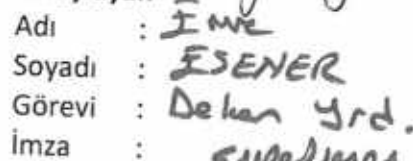 Adı :
Soyadı : ESENER
Görevi : Dekan Yrd.
İmza :